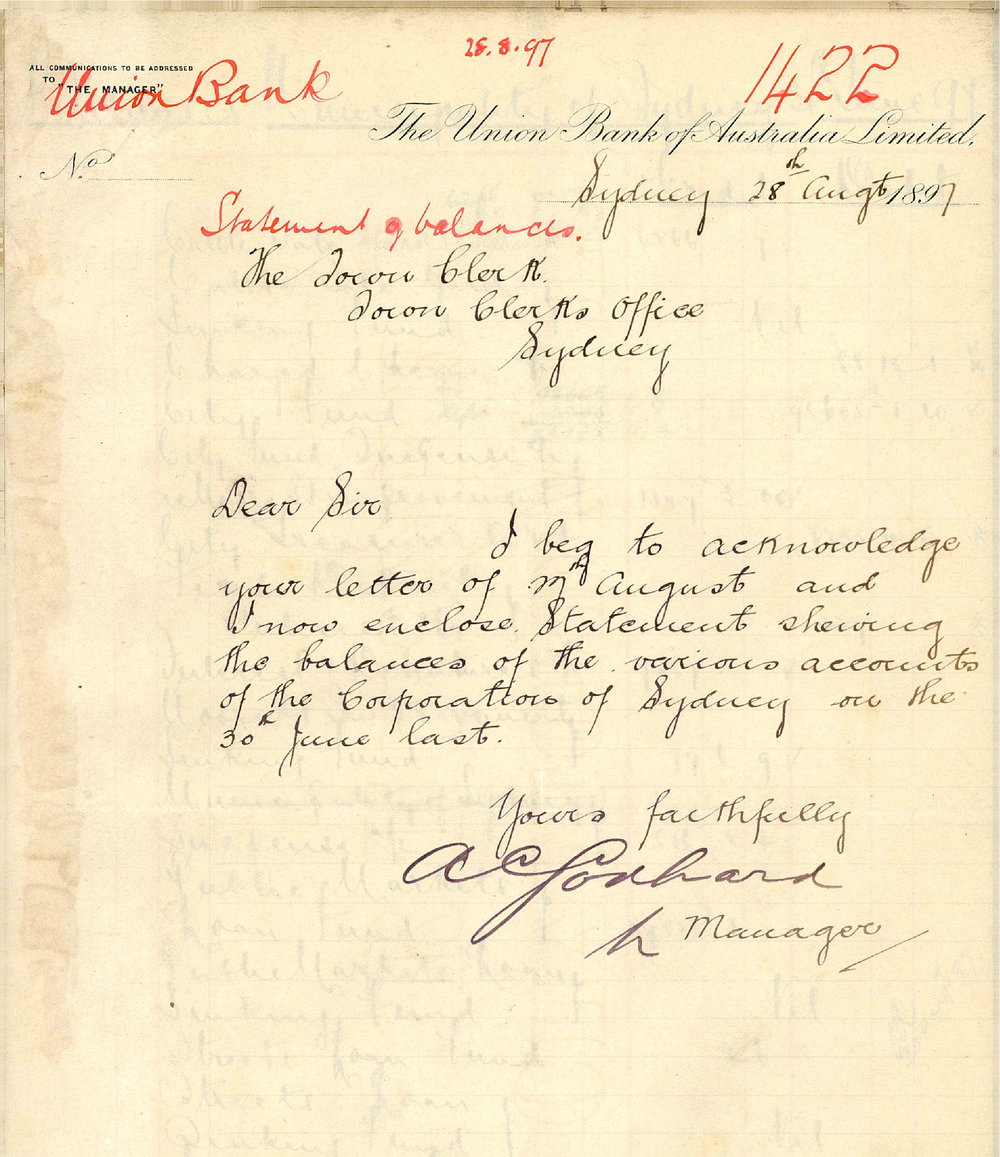 28.8.97
ALL COMMUNICATIONS TO BE ADDRESSED
TO
"THE MANAGER"
Union Bank
1422
The Union Bank of Australia Limited.
No
Sydney 28th Augt 1897
Statement of balances.
The Town Clerk.
Town Clerks Office
Sydney
Dear Sir
I beg to acknowledge
your letter of August and
I now enclose Statement shewing
the balances of the various accounts
of the Corporation of Sydney on the
30th June last.
Yours faithfully
A C Godhard
Manager